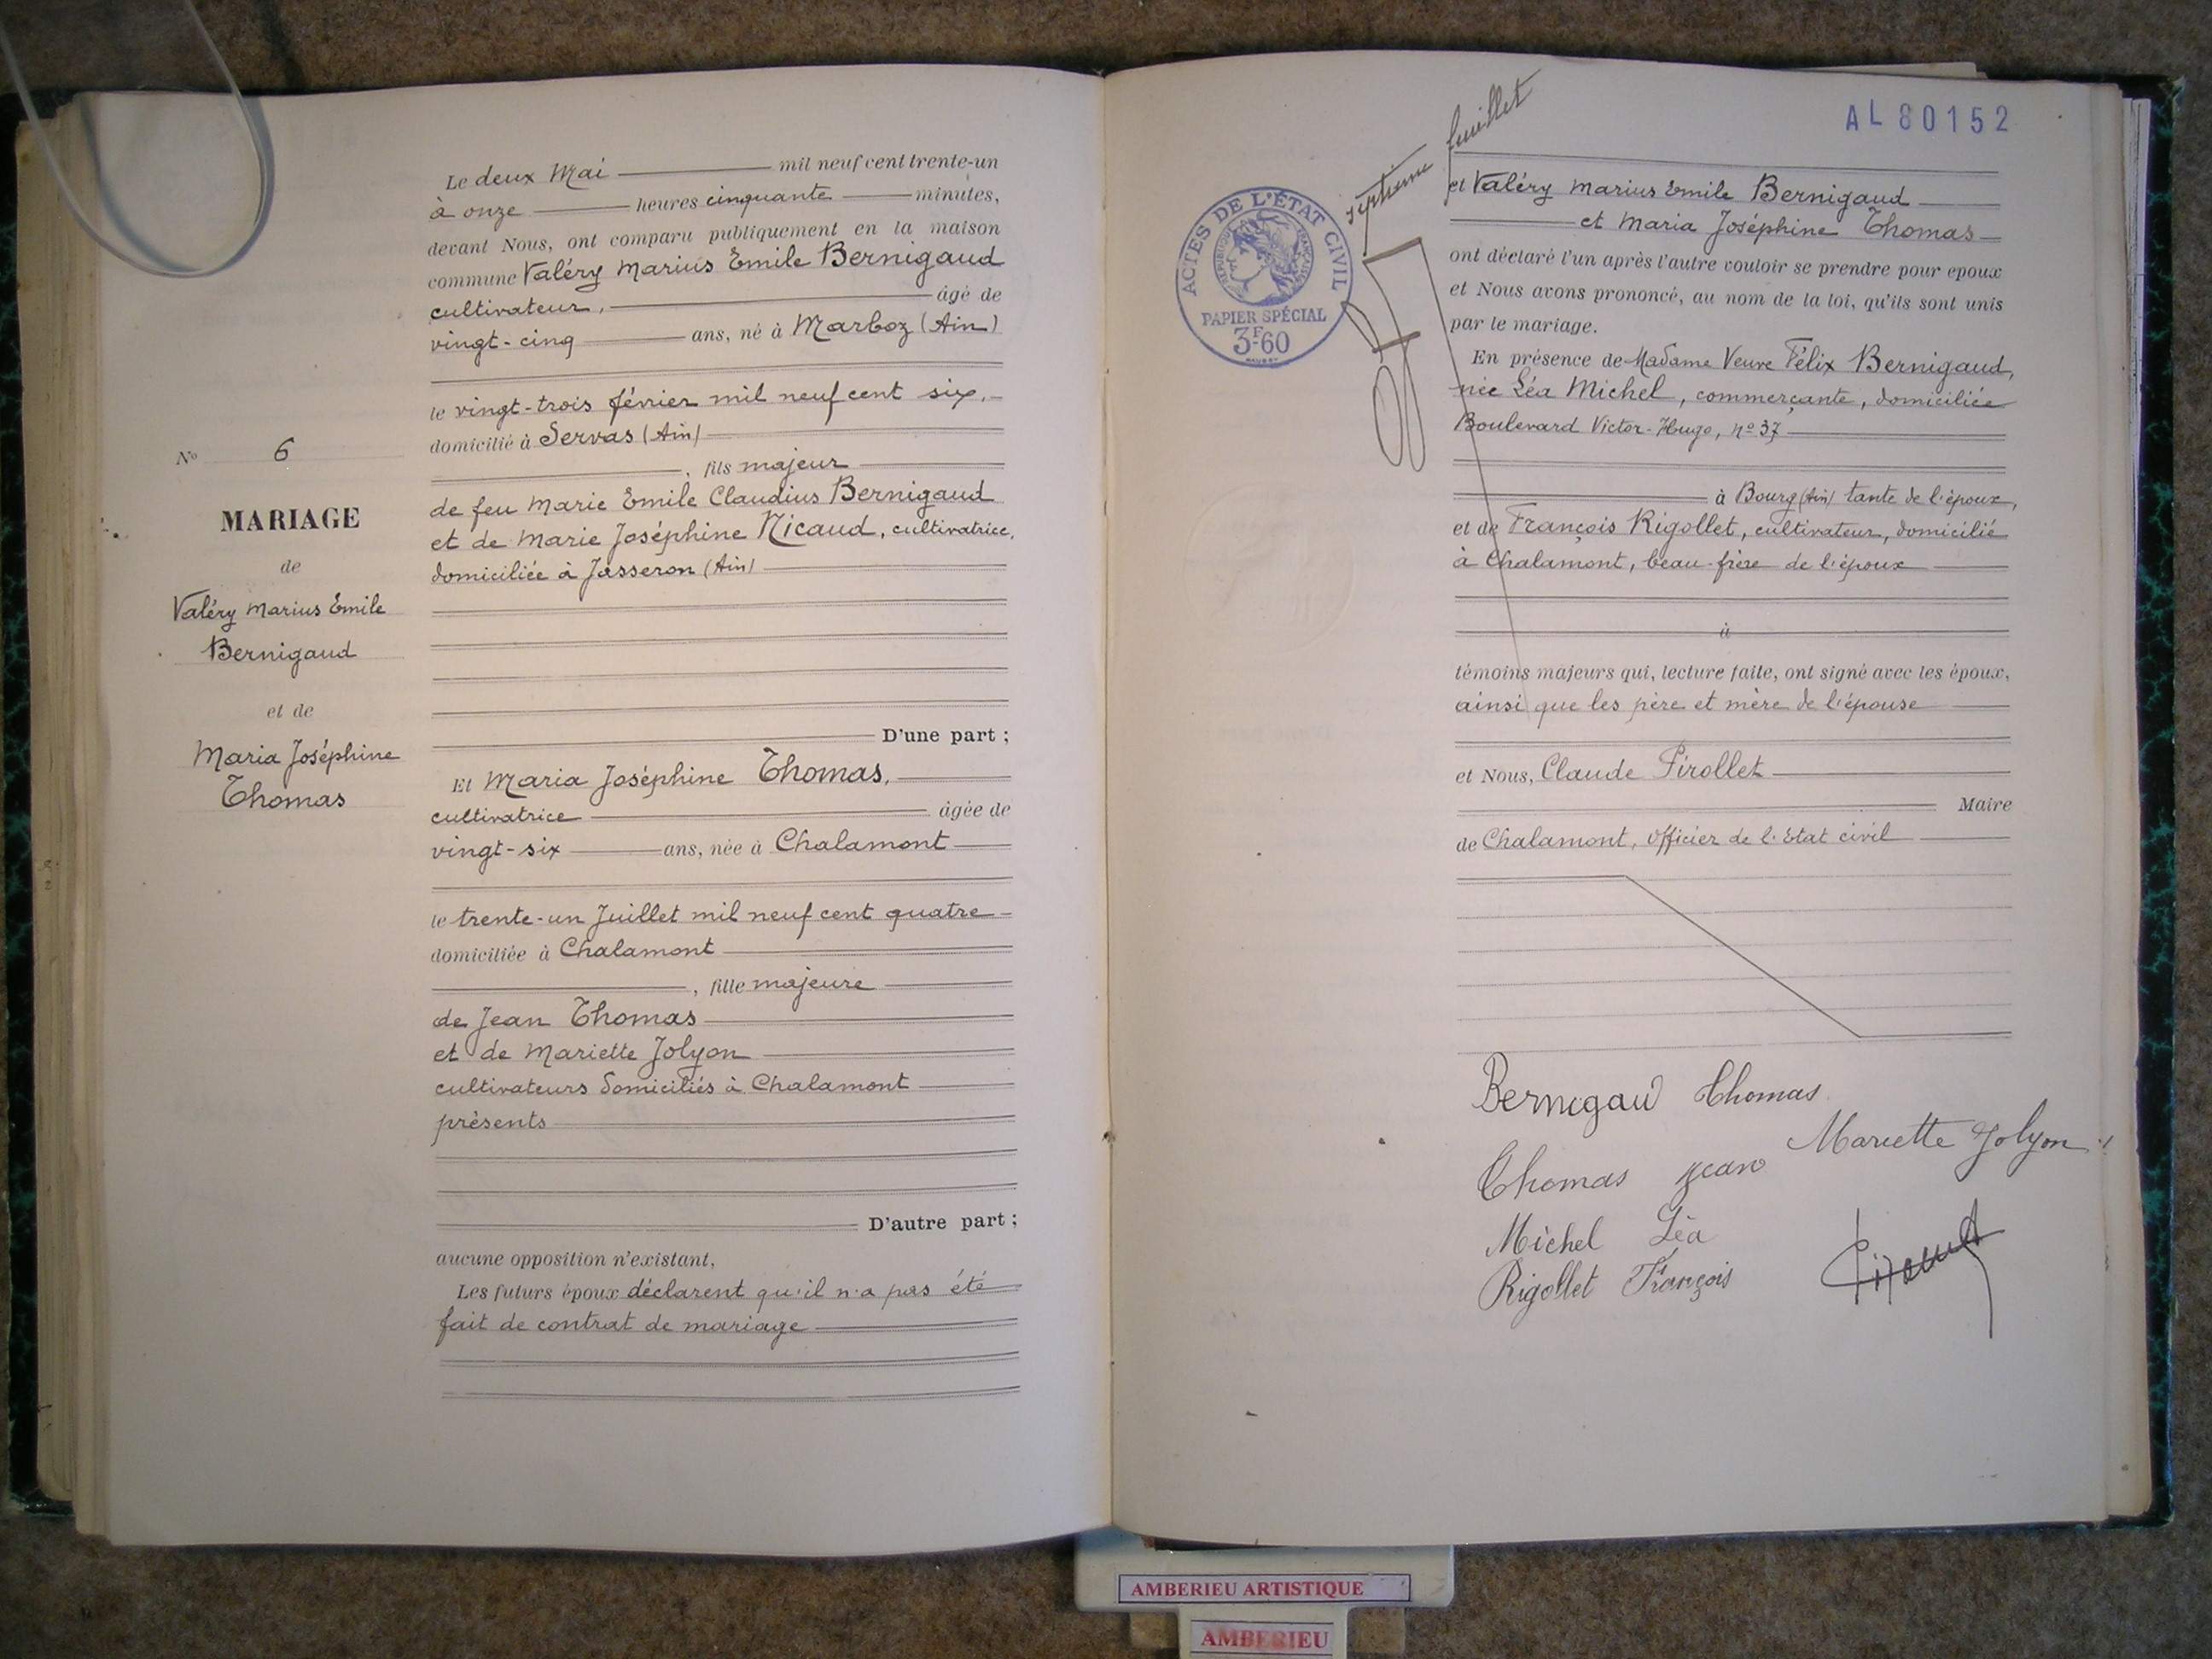 N° 6
MARIAGE
de
Valéry Marius Emile
Bernigaud
et de
Maria Joséphine
Thomas
Le deux Mai mil neuf cent trente-un
à onze heures cinquante minutes,
devant Nous, ont comparu publiquement en la maison
commune Valéry Marius Emile Bernigaud
cultivateur, âgé de
vingt-cinq ans, né à Marboz (Ain)
le vingt-trois février mil neuf cent six,
domicilié à Servas (Ain)
, fils majeur
de feu Marie Emile Claudius Bernigaud
et de Marie Joséphine Nicaud, cultivatrice,
domiciliée à Jasseron (Ain)
D'une part ;
Et Maria Joséphine Thomas,
cultivatrice âgée de
vingt-six ans, née à Chalamont
le trente-un Juillet mil neuf cent quatre
domiciliée à Chalamont
, fille majeure
de Jean Thomas
et de Mariette Jolyon
cultivateurs domiciliés à Chalamont
présents
D'autre part ;
aucune opposition n'existant,
Les futurs époux déclarent qu'il n'a pas été
fait de contrat de mariage
septième feuillet
AL 80152
ACTES DE L'ÉTAT CIVIL
RÉPUBLIQUE FRANÇAISE
PAPIER SPÉCIAL
3F60
et Valéry Marius Emile Bernigaud
et Maria Joséphine Thomas
ont déclaré l'un après l'autre vouloir se prendre pour epoux
et Nous avons prononcé, au nom de la loi, qu'ils sont unis
par le mariage.
En présence de Madame Veuve Félix Bernigaud,
née Léa Michel, commerçante, domiciliée
Boulevard Victor-Hugo, n° 37
à Bourg (Ain) tante de l'époux,
et de François Rigollet, cultivateur, domicilié
à Chalamont, beau-frère de l'époux
à
témoins majeurs qui, lecture faite, ont signé avec les époux,
ainsi que les père et mère de l'épouse
et Nous, Claude Pirollet
Maire
de Chalamont, officier de l'Etat civil
Bernigaud Thomas
Thomas Jean Mariette Jolyon
Michel Léa
Rigollet François
AMBERIEU ARTISTIQUE
AMBERIEU